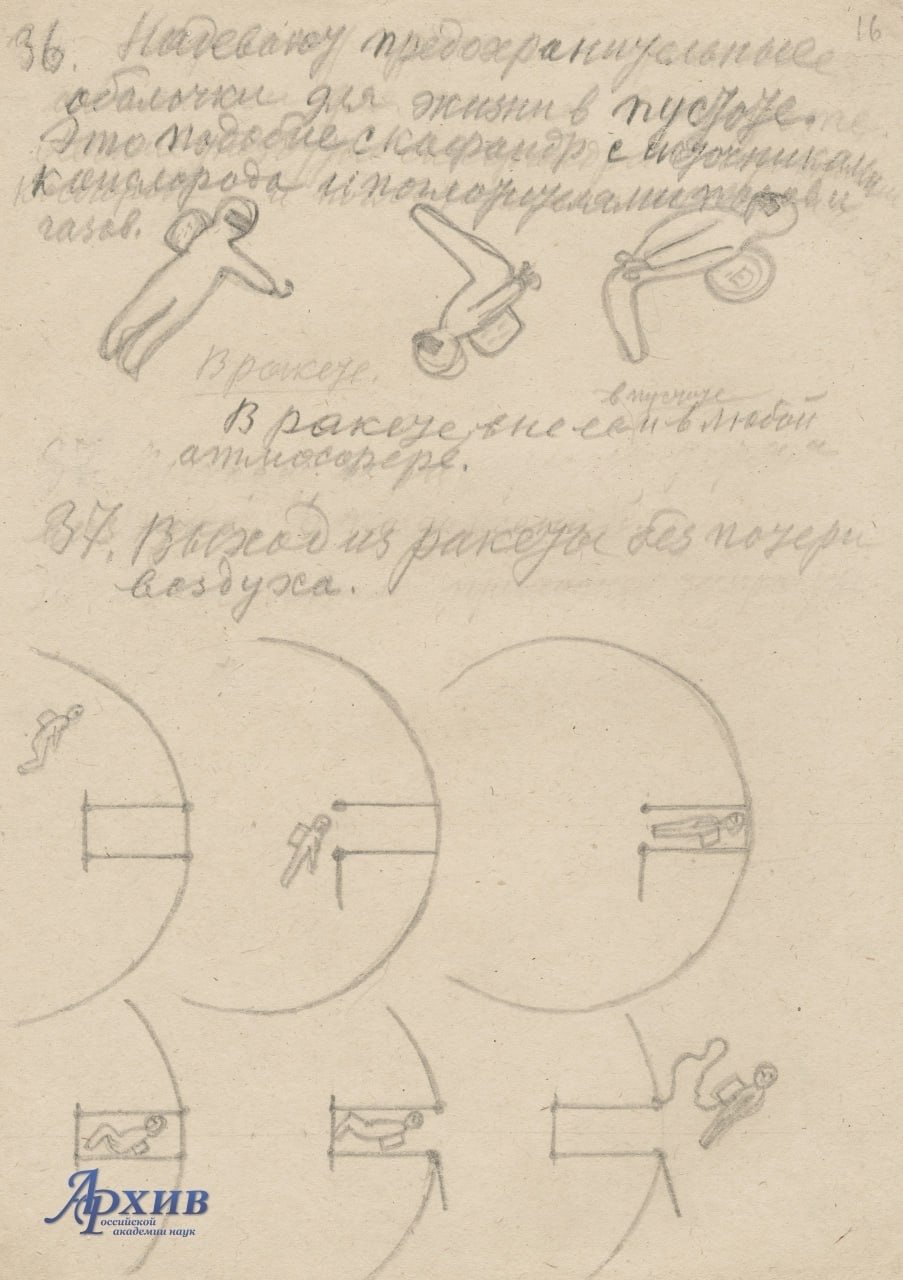 16
36. Надевают предохранительные
оболочки для жизни в пустоте.
Это подобие скафандр с источниками
кислорода и поглотителями паров и
газов.
В ракете.
в пустоте
В ракете, вне ея и в любой
атмосфере.
37. Выход из ракеты без потери
воздуха.
Архив
российской
академии наук